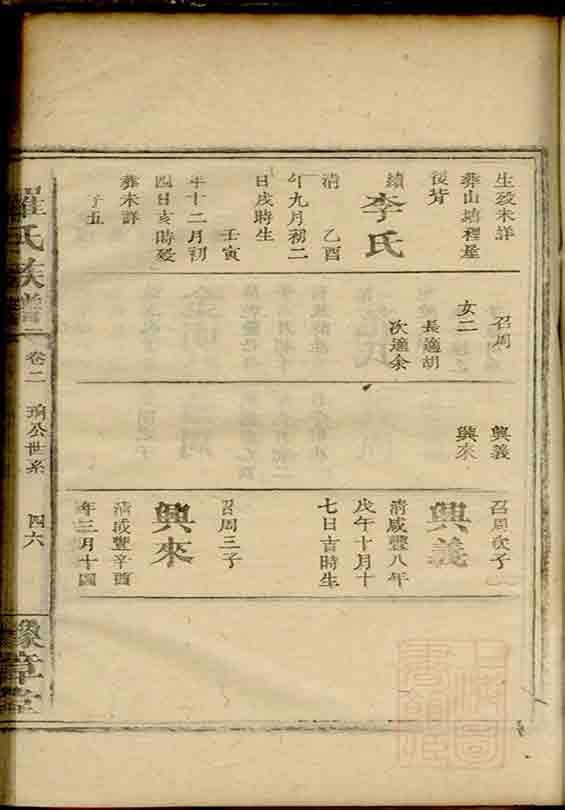 生歿未詳
葬山塘裡屋
後背
續李氏
清　乙酉
年九月初二
日戌時生
壬寅
年十二月初
四日亥時歿
葬未詳
子五
召周
女二
長適胡
次適余
興義
興來
召周次子
興義
清咸豐八年
戊午十月十
七日吉時生
召周三子
興來
清咸豐辛酉
年三月十四
羅氏族譜
卷二
公世系
四六
豫章堂